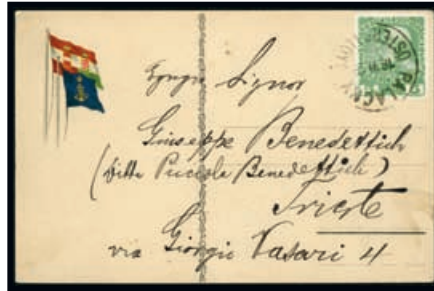 PALACKY
ÖSTERR. LLOYD
Egregio Signor
Giuseppe Benedettich
(Ditta Piccola Benedettich)
Trieste
via Giorgio Vasari 4